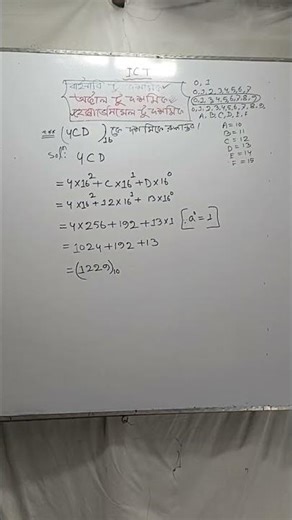 ICT
বাইনারি টু দশমিকে
অক্টাল টু দশমিকে
হেক্সাডেসিমেল টু দশমিকে
0, 1
0,1,2,3,4,5,6,7
0,1,2,3,4,5,6,7,8,9
0,1,2,3,4,5,6,7,8,9,
A, B, C, D, E, F
A = 10
B = 11
C = 12
D = 13
E = 14
F = 15
*** (4CD)₁₆ কে দশমিকে রূপান্তর।
Solⁿ: 4CD
= 4×16² + C×16¹ + D×16⁰
= 4×16² + 12×16¹ + 13×16⁰
= 4×256 + 192 + 13×1 [∴ a⁰ = 1]
= 1024 + 192 + 13
= (1229)₁₀